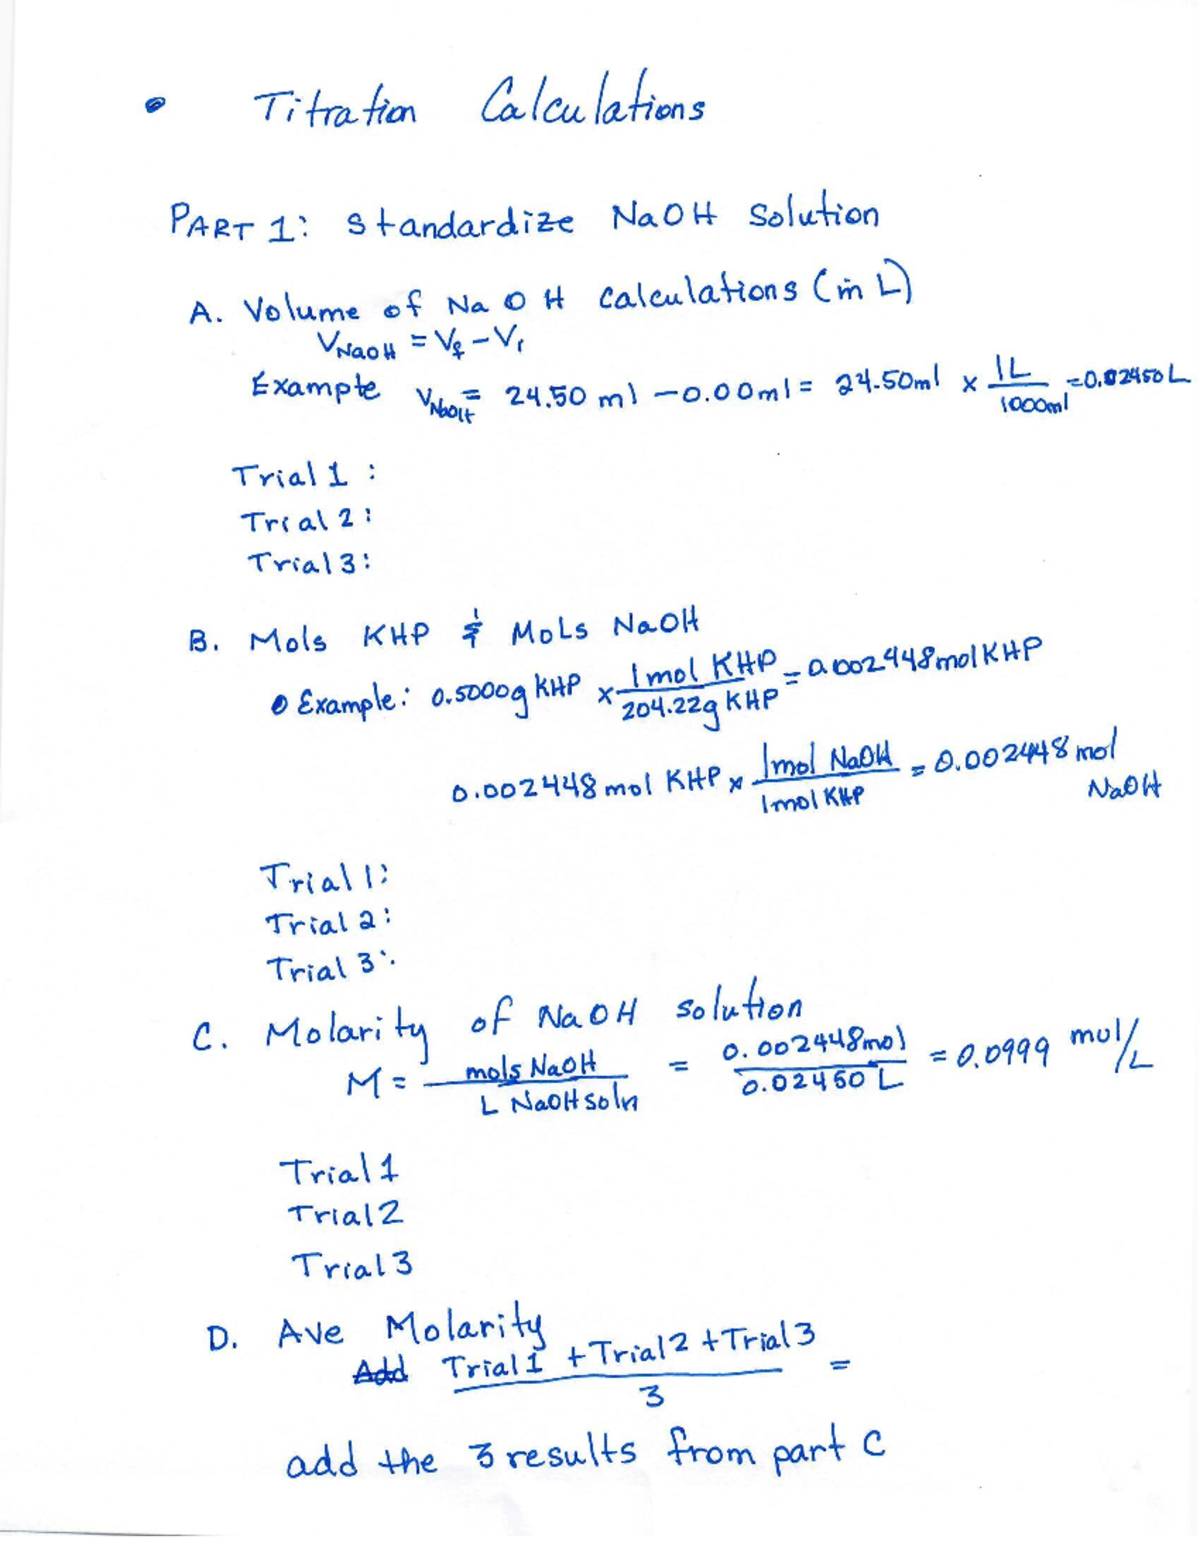 • Titration Calculations
PART 1: Standardize NaOH Solution
A. Volume of NaOH calculations (in L)
V_NaOH = V_f - V_i
Example V_NaOH = 24.50 ml - 0.00ml = 24.50ml x 1L/1000ml = 0.02450L
Trial 1:
Trial 2:
Trial 3:
B. Mols KHP & MOLS NaOH
• Example: 0.5000g KHP x 1 mol KHP/204.22g KHP = 0.002448 mol KHP
0.002448 mol KHP x 1mol NaOH/1mol KHP = 0.002448 mol NaOH
Trial 1:
Trial 2:
Trial 3:
C. Molarity of NaOH solution
M = mols NaOH/L NaOH soln = 0.002448mol/0.02450 L = 0.0999 mol/L
Trial 1
Trial 2
Trial 3
D. Ave Molarity
Add Trial 1 + Trial 2 + Trial 3/3 =
add the 3 results from part C